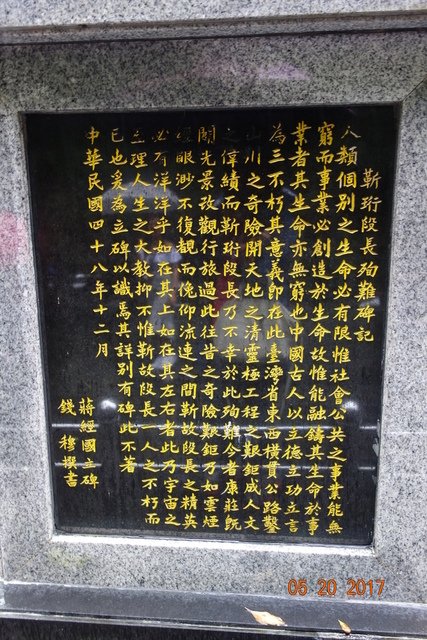 靳珩段長殉難碑記
人類個別之生命必有限惟社會公共之事業能無
窮而事業必創造於生命故惟能融鑄其生命於事
業者其生命亦無窮也中國古人以立德立功立言
為三不朽其意義即在此臺灣省東西橫貫公路鑿
山川之奇險開天地之清靈極工程之艱鉅成人文
之偉績而靳珩段長乃不幸於此殉難今者康莊既
闢光景改觀行旅過此往昔之奇險艱鉅乃如雲煙
經眼渺不復覩而俛仰流連之間靳故段長之精英
必有洋洋乎如在其上如在其左右者此乃宇宙之
至理人生之大教抑不惟靳故段長一人之不朽而
已也爰為立碑以識焉其詳別有碑此不著
中華民國四十八年十二月
蔣經國立碑
錢穆撰書
05 20 2017